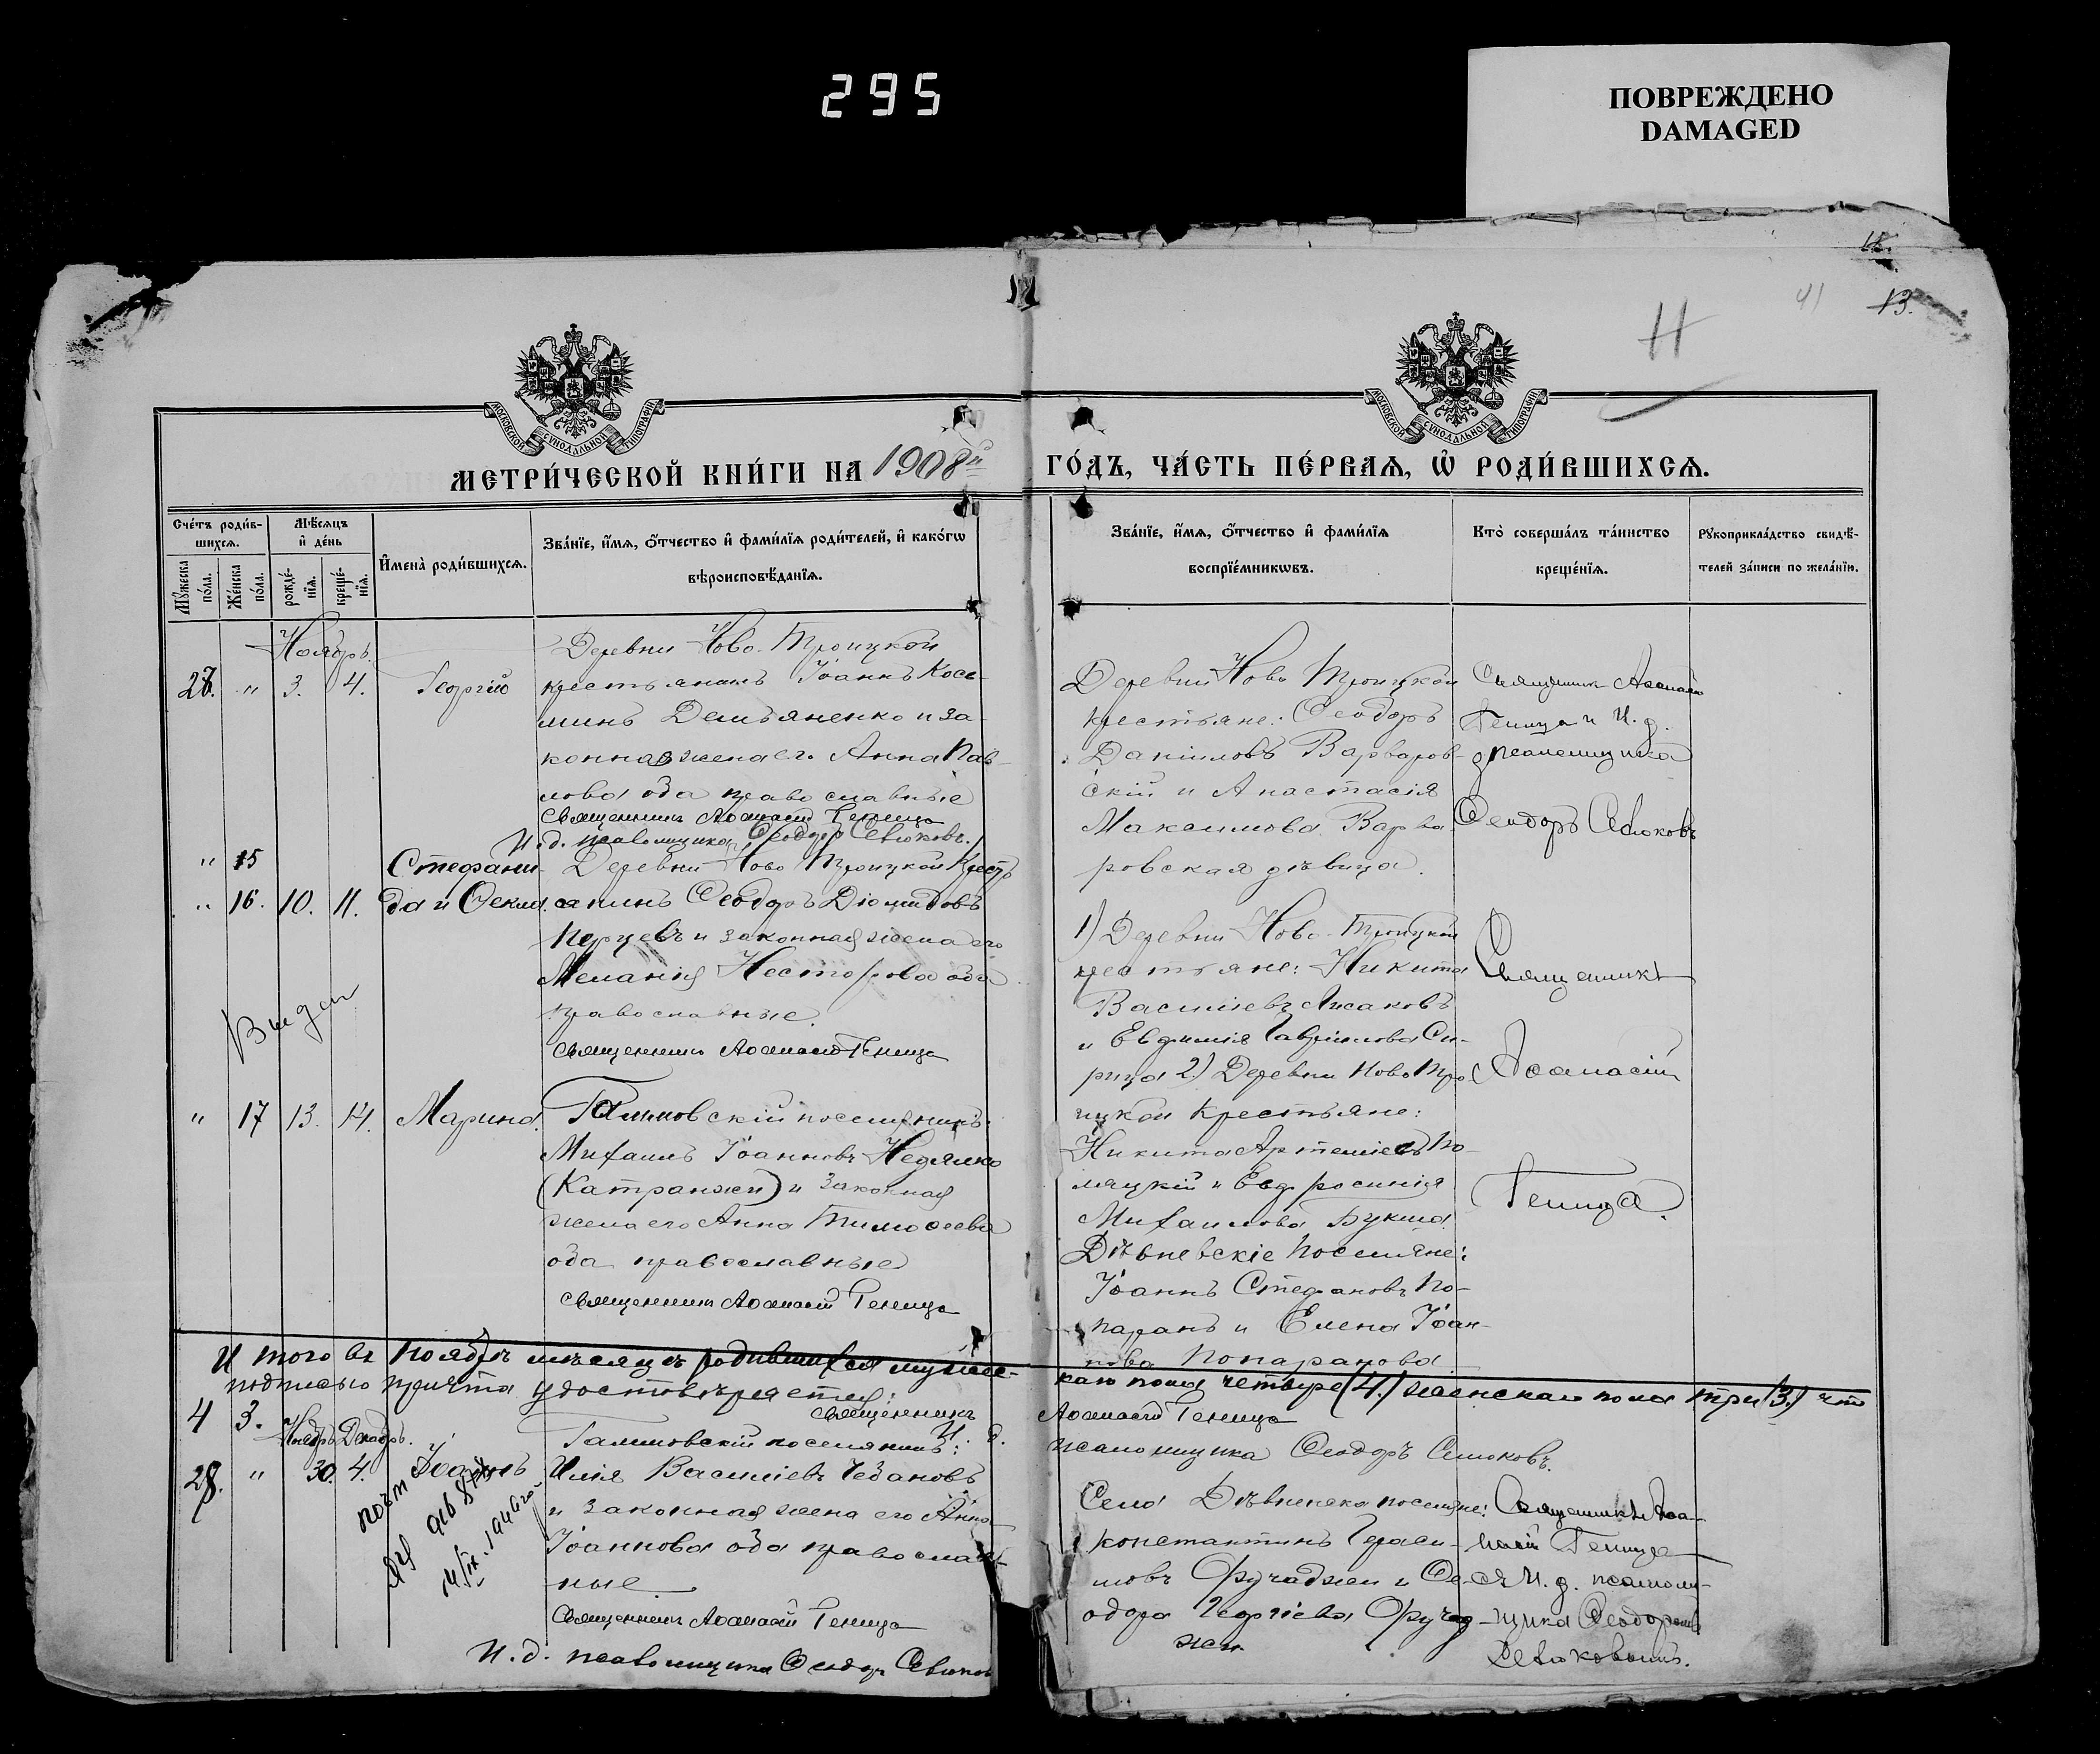 295
ПОВРЕЖДЕНО
DAMAGED
41
13.
МОСКОВСКОЙ СУНОДАЛЬНОЙ ТИПОГРАФІИ
МОСКОВСКОЙ СУНОДАЛЬНОЙ ТИПОГРАФІИ
МЕТРИ́ЧЕСКОЙ КНИ́ГИ НА 1908й ГО́ДЪ, ЧА́СТЬ ПЕ́РВАѦ, Ѡ҆ РОДИ́ВШИХСѦ.
Сче́тъ роди́в-
шихсѧ.
Мꙋ́жеска по́ла.
Же́нска по́ла.
Мѣ́сѧцъ
и҆ де́нь
рожде́-
нїѧ.
креще́-
нїѧ.
И҆мена̀ роди́вшихсѧ.
Зва́нїе, и҆́мѧ, ѻ҆́тчество и҆ фами́лїѧ роди́телей, и҆ како́гѡ
вѣроисповѣ́данїѧ.
Зва́нїе, и҆́мѧ, ѻ҆́тчество и҆ фами́лїѧ
воспрїе́мникѡвъ.
Кто̀ соверша́лъ та́инство
креще́нїѧ.
Рꙋкоприкла́дство свидѣ́-
телей за́писи по жела́нїю.
Ноябрь.
27. " 3. 4. Георгій
Деревни Ново-Троицкой
крестьянинъ Іоаннъ Кось-
минъ Демьяненко и за-
конная жена его Анна Пав-
лова оба православные
Священникъ Аѳанасій Геница
И. д. псаломщика Ѳеодоръ Севюковъ.
Деревни Ново Троицкой
крестьяне: Ѳеодоръ
Даніиловъ Варваров-
скій и Анастасія
Максимова Варва-
ровская дѣвица.
Священникъ Аѳанасій
Геница и И. д.
псаломщика
Ѳеодоръ Севюковъ
" 15
" 16. 10. 11.
Стефани-
да и Ѳекла.
Деревни Ново Троицкой Кресть
янинъ Ѳеодоръ Діомидовъ
Перцевъ и законная жена его
Меланія Несторова оба
православные.
Священникъ Аѳанасій Геница
Выдан
1) Деревни Ново-Троицкой
крестьяне: Никита
Василіевъ Лисаковъ
и Евфимія Гавріилова Си-
рица 2) Деревни Ново Тро-
ицкой Крестьяне:
Никита Артеміевъ По-
ляцкій и Евфросинія
Михаилова Букша.
Священникъ
Аѳанасій
Геница.
" 17 13. 14. Марина.
Галимовскій поселянинъ:
Михаилъ Іоанновъ Недялко
(Катранжи) и Законная
жена его Анна Тимоѳеева
оба православные
Священникъ Аѳанасій Геница
Дѣвневскіе Поселяне:
Іоаннъ Стефановъ По-
паранъ и Елена Іоан-
нова Попаранова
И того въ Ноябрѣ мѣсяцѣ родившихся мужес-
каго пола четыре (4.) женскаго пола три (3.) что
подписью причта удостовѣряется:
4 3.
Священникъ Аѳанасій Геница
И. д. псаломщика Ѳеодоръ Севюковъ.
Ноябрь Декабрь.
28. " 30. 4. Іоаннъ
Галимовскій поселянинъ:
Илія Василіевъ Чебановъ
и законная жена его Анна
Іоаннова оба православ-
ные
Священникъ Аѳанасій Геница
И. д. псаломщика Ѳеодоръ Севюковъ
Села Дѣвненска поселяне:
Константинъ Гераси-
мовъ Фучаджи и Ѳе-
одора Георгіева Фучад-
жи
Священникъ Аѳа-
насій Геница
съ И. д. псаломщ-
щика Ѳеодоромъ
Севюковымъ.